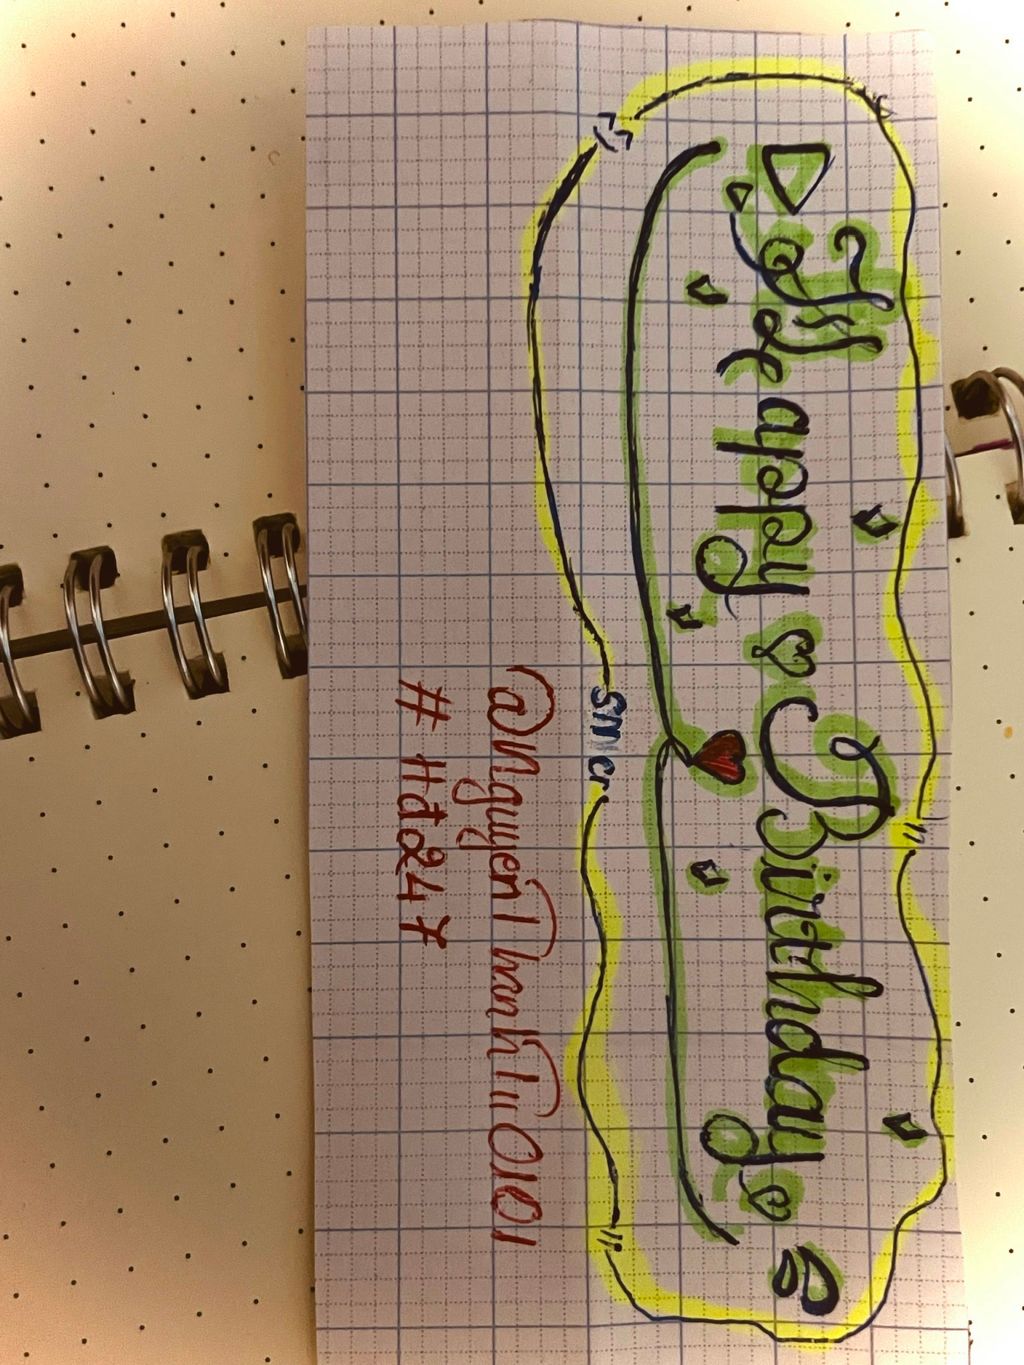 Happy Birthday
@NguyenThanhTu0101
# Hd247